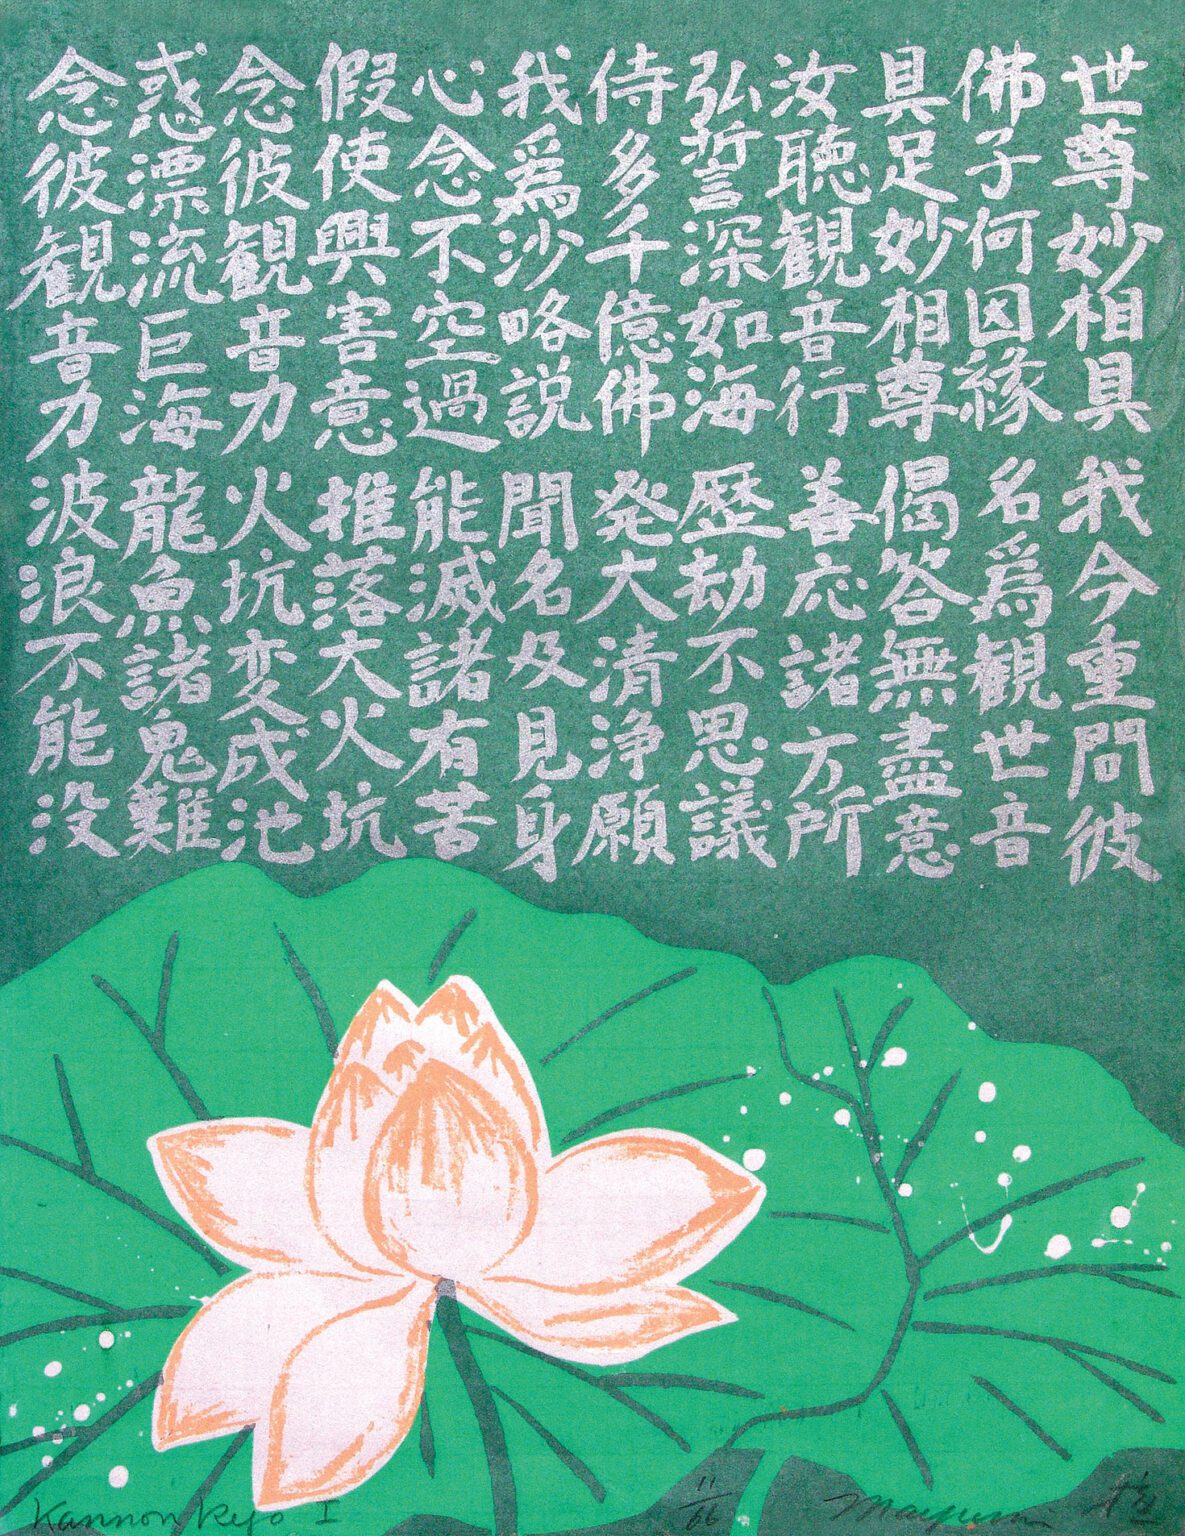 世尊妙相具 我今重問彼
佛子何因緣 名爲観世音
具足妙相尊 偈答無盡意
汝聴観音行 善応諸方所
弘誓深如海 歴劫不思議
侍多千億佛 発大清浄願
我爲沙略説 聞名及見身
心念不空過 能滅諸有苦
假使興害意 推落大火坑
念彼観音力 火坑変成池
惑漂流巨海 龍魚諸鬼難
念彼観音力 波浪不能没
Kannon Kyo I
11/66
Mayumi